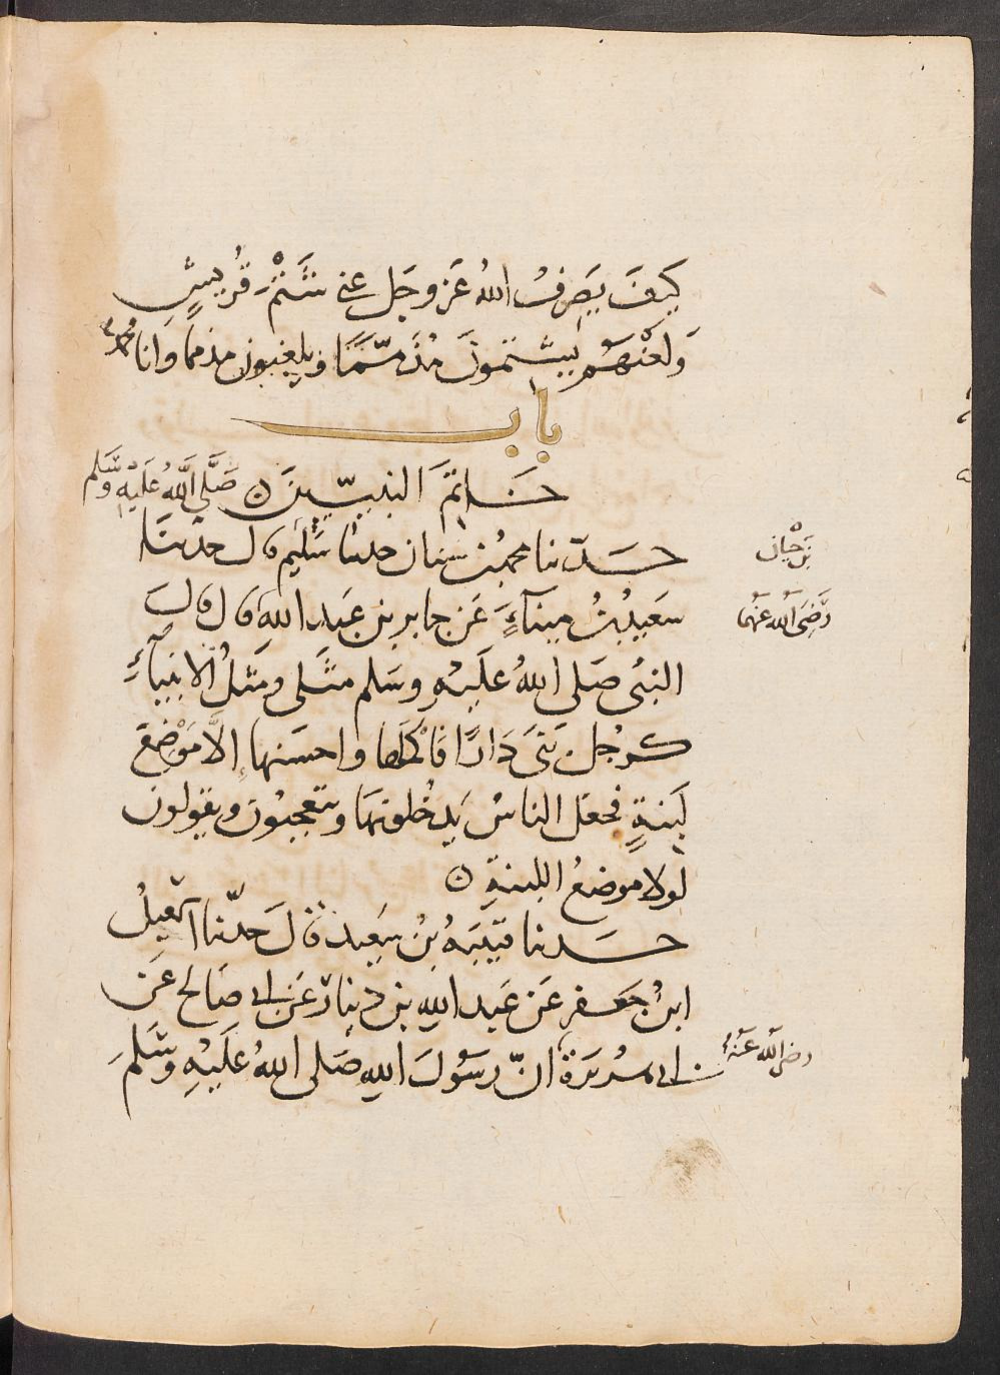 كَيفَ يَصرِفُ اللهُ عَز وجَل عني شَتْمَ قُريشٍ
وَلَعْنَهُم يَشتمُونَ مُذَمّمًا ويلعنون مذمما وَانا محمد
باب
خَاتم النبيّينَ صَلَّى اللَّهُ عَلَيْهِ وَسَلم
حَدّثنا محمد بن سنان حدثنا سَلِيم قال حدثنا
بن حَيان
سَعيدُ بنُ مِينآءَ عَن جابر بنِ عَبد الله قال قال
رَّضِيَ اللَّه عَنهُمَا
النبيُ صَلى اللهُ عَليهِ وسَلم مثَلى ومَثلُ الانبياءِ
كرجُلٍ بَنَى دَارًا فاكملها واحسَنها إلاَّ مَوْضِعَ
لَبِنةٍ فجعَل الناسُ يَدخُلونهَا ويتعجبُون ويقولون
لولا موضعُ اللبنةِ
حَدثنا قتيبَةُ بنُ سَعِيد قال حَدّثنا اسمعيلُ
ابنُ جَعفرٍ عَن عَبد اللهِ بن دِينار عَن ابى صَالح عَن
ابى هريرَةَ انّ رَسُولَ اللهِ صَلى اللهُ عَلَيْهِ وسَلمَ
رضي اللَّه عَنْهُ